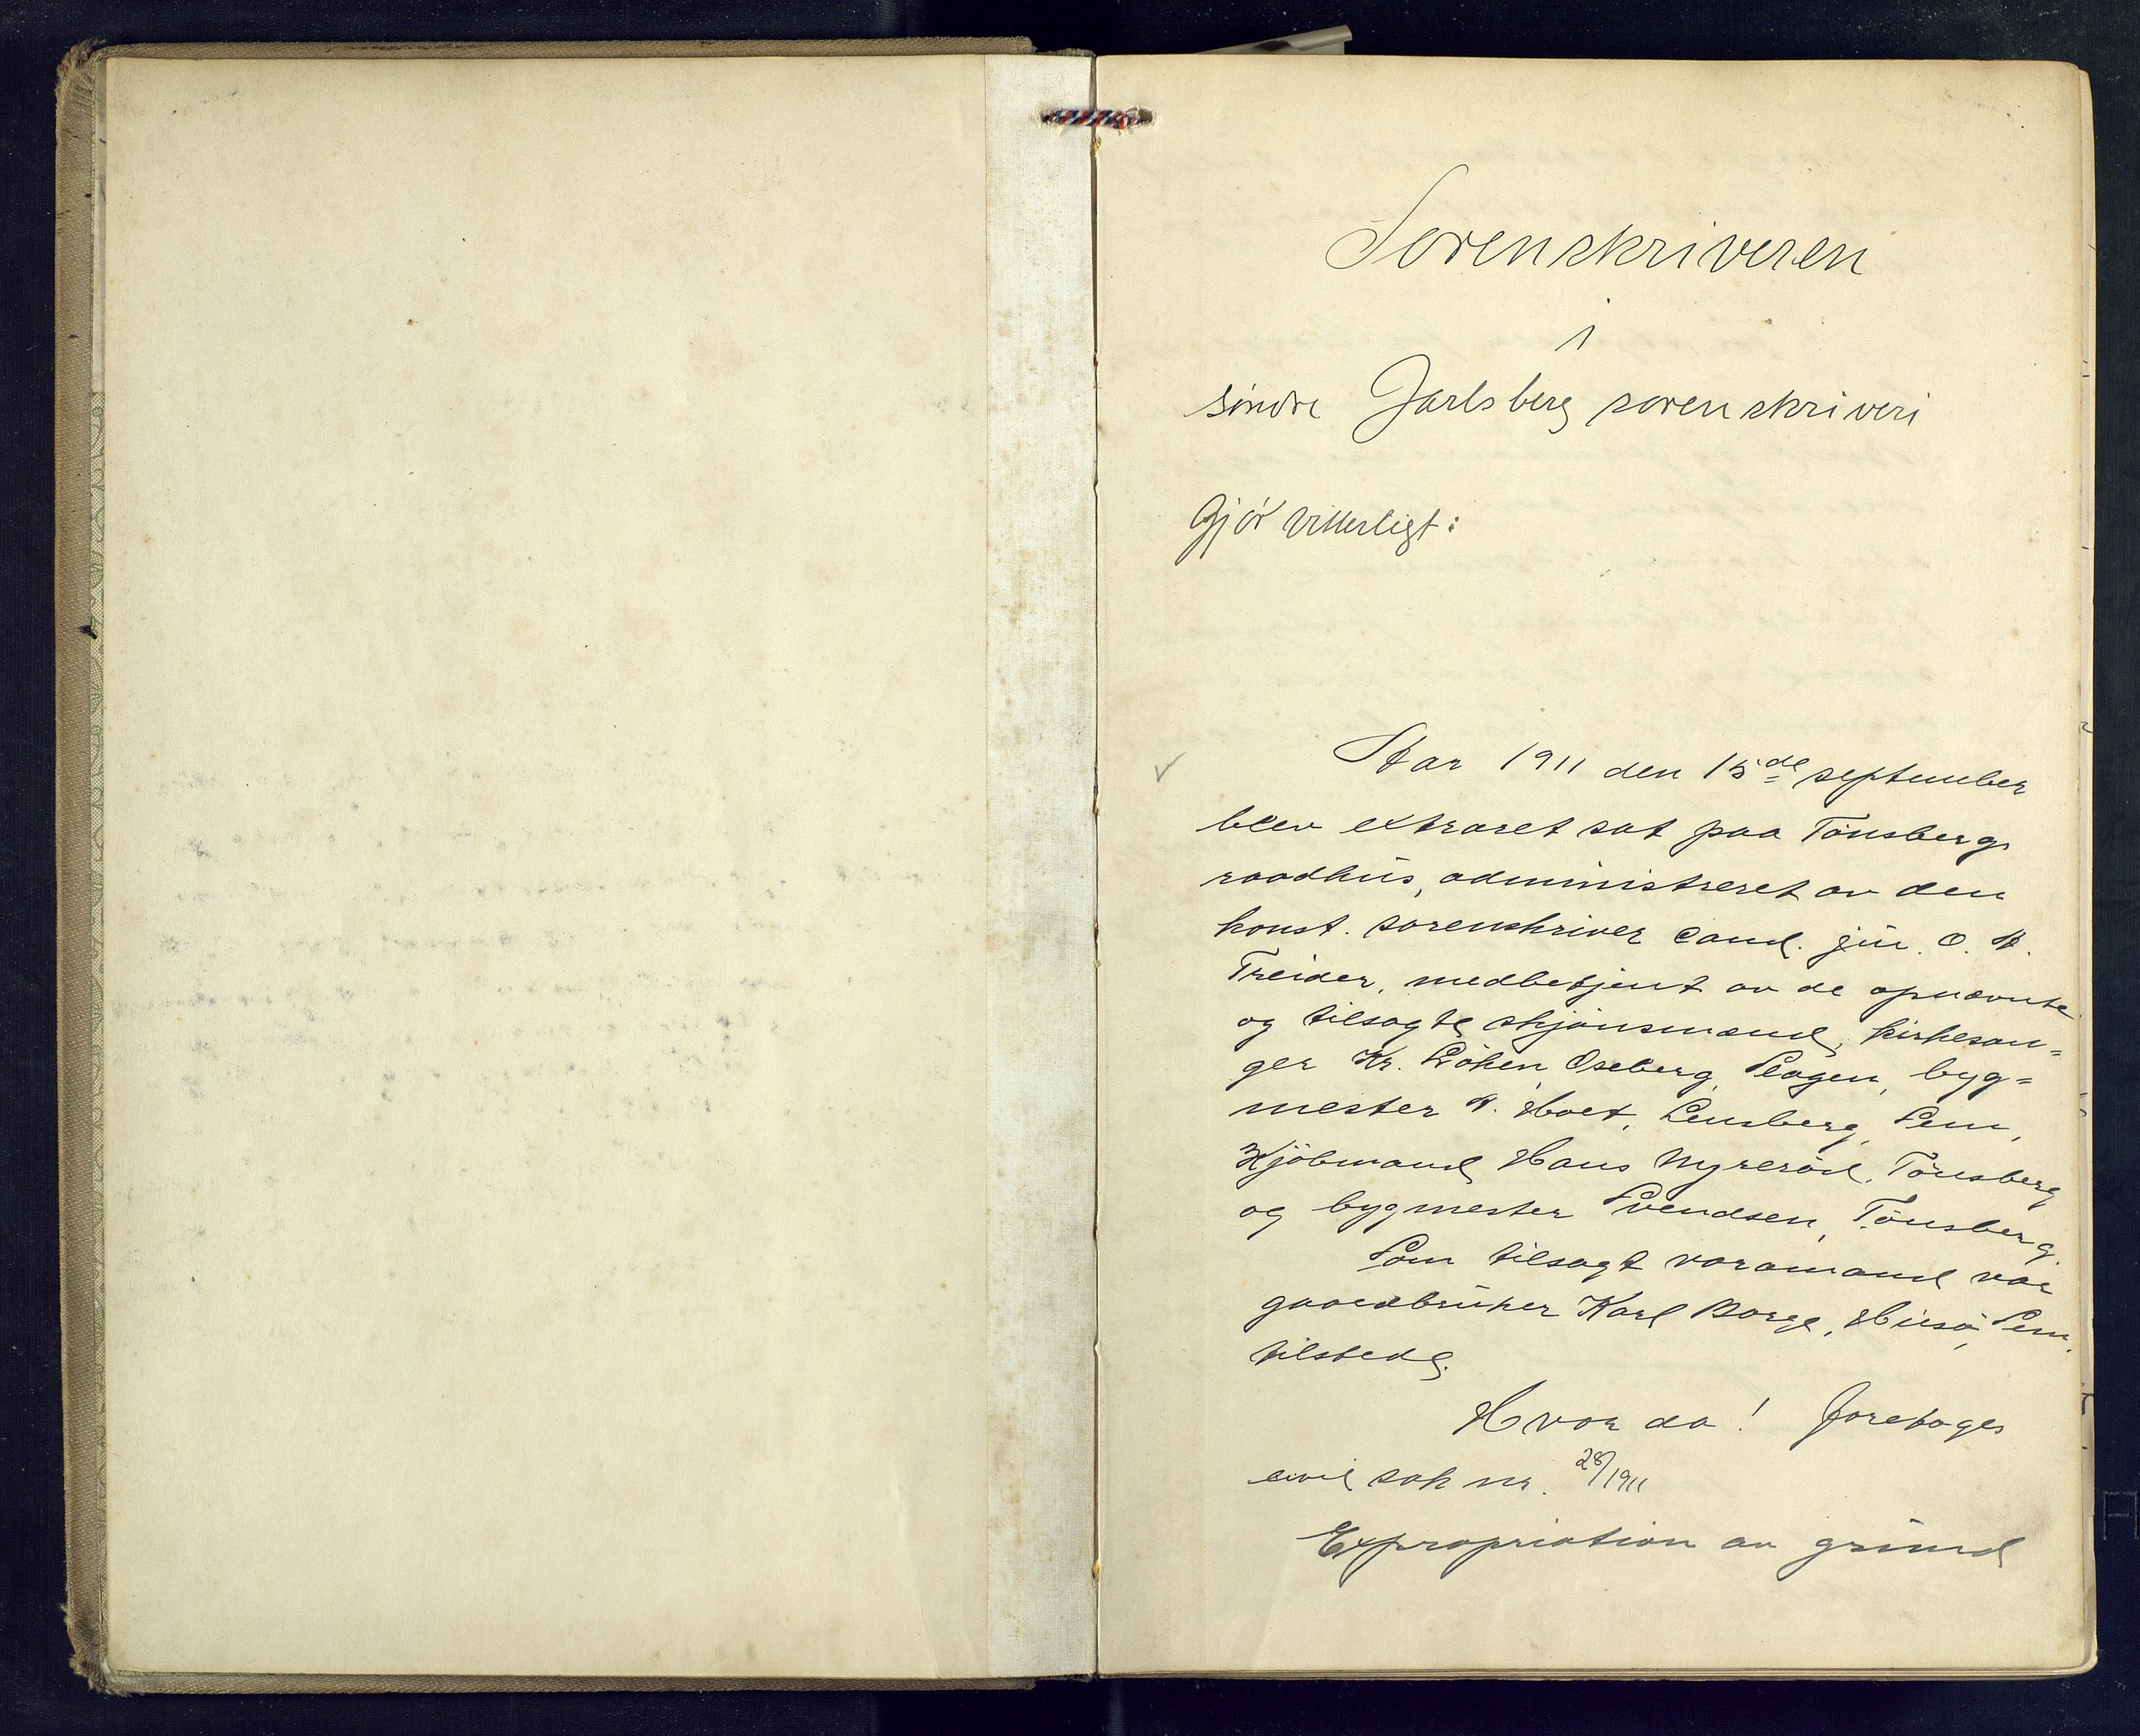 Sorenskriveren
i
søndre Jarlsberg sorenskriveri
Gjør vitterligt:
Aar 1911 den 15de september
blev extraret sat paa Tønsbergs
raadhus, administreret av den
konst. sorenskriver cand. jur. O. A.
Treider, medbetjent av de opnævnte
og tilsagte skjønsmænd, kirkesan=
ger Kr. Løken, Oseberg, Slagen, byg=
mester A. Holt, Lensberg, Sem,
Kjøbmand Hans Myrerød, Tønsberg
og bygmester Svendsen, Tønsberg.
Som tilsagt varamand var
gaardbruker Karl Borge, Husø, Sem,
tilstede.
Hvor da! Foretoges
civil sak nr. 28/1911
Expropriation av grund